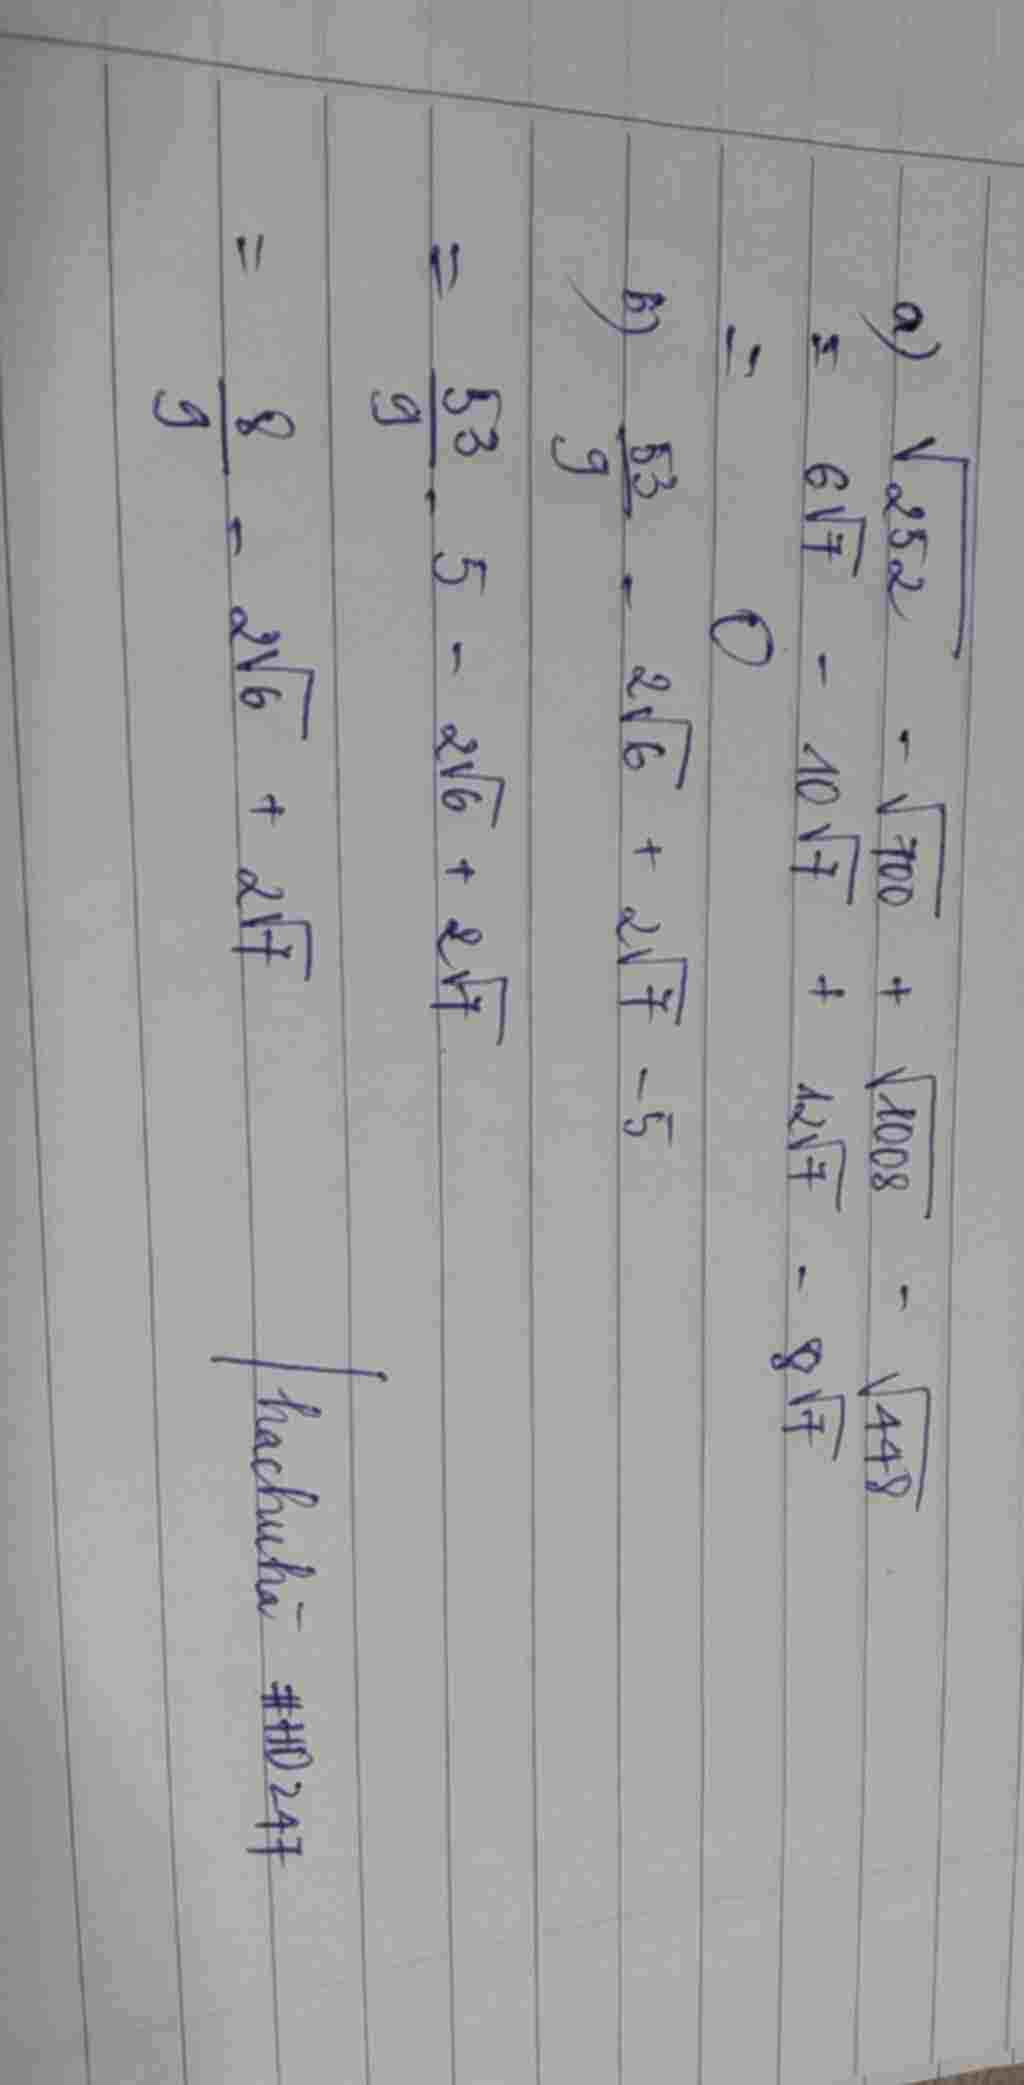 a) √252 - √700 + √1008 - √448
= 6√7 - 10√7 + 12√7 - 8√7
= 0
b) 53/9 - 2√6 + 2√7 - 5
= 53/9 - 5 - 2√6 + 2√7
= 8/9 - 2√6 + 2√7
#HD247